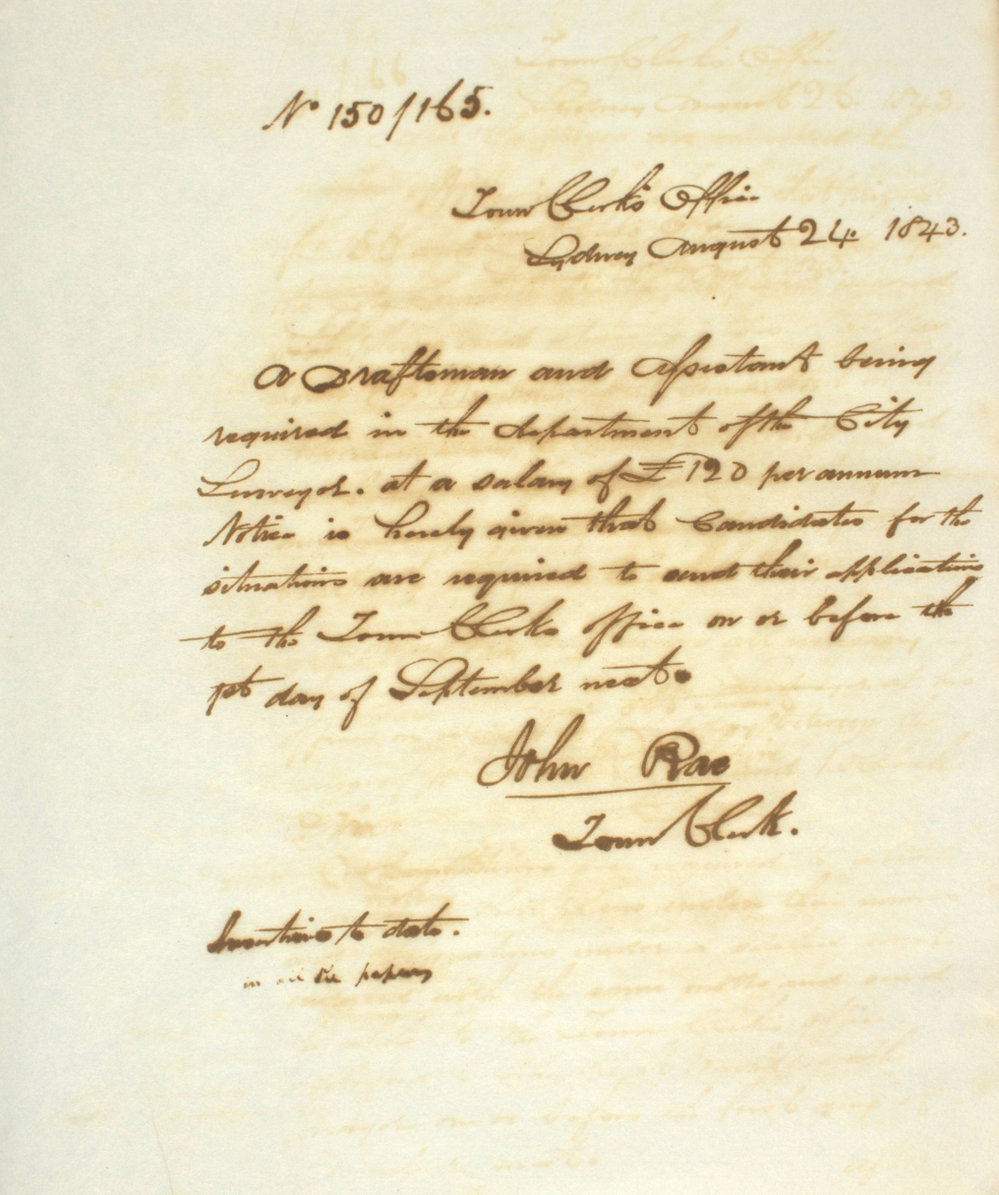 No 150/165.
Town Clerk's Office
Sydney August 24. 1843.
A Draftsman and Assistant being
required in the department of the City
Surveyor. at a salary of £120 per annum
Notice is hereby given that Candidates for the
situations are required to send their applications
to the Town Clerks office on or before the
1st day of September next.
John Rae
Town Clerk.
Insertions to date.
in all the papers